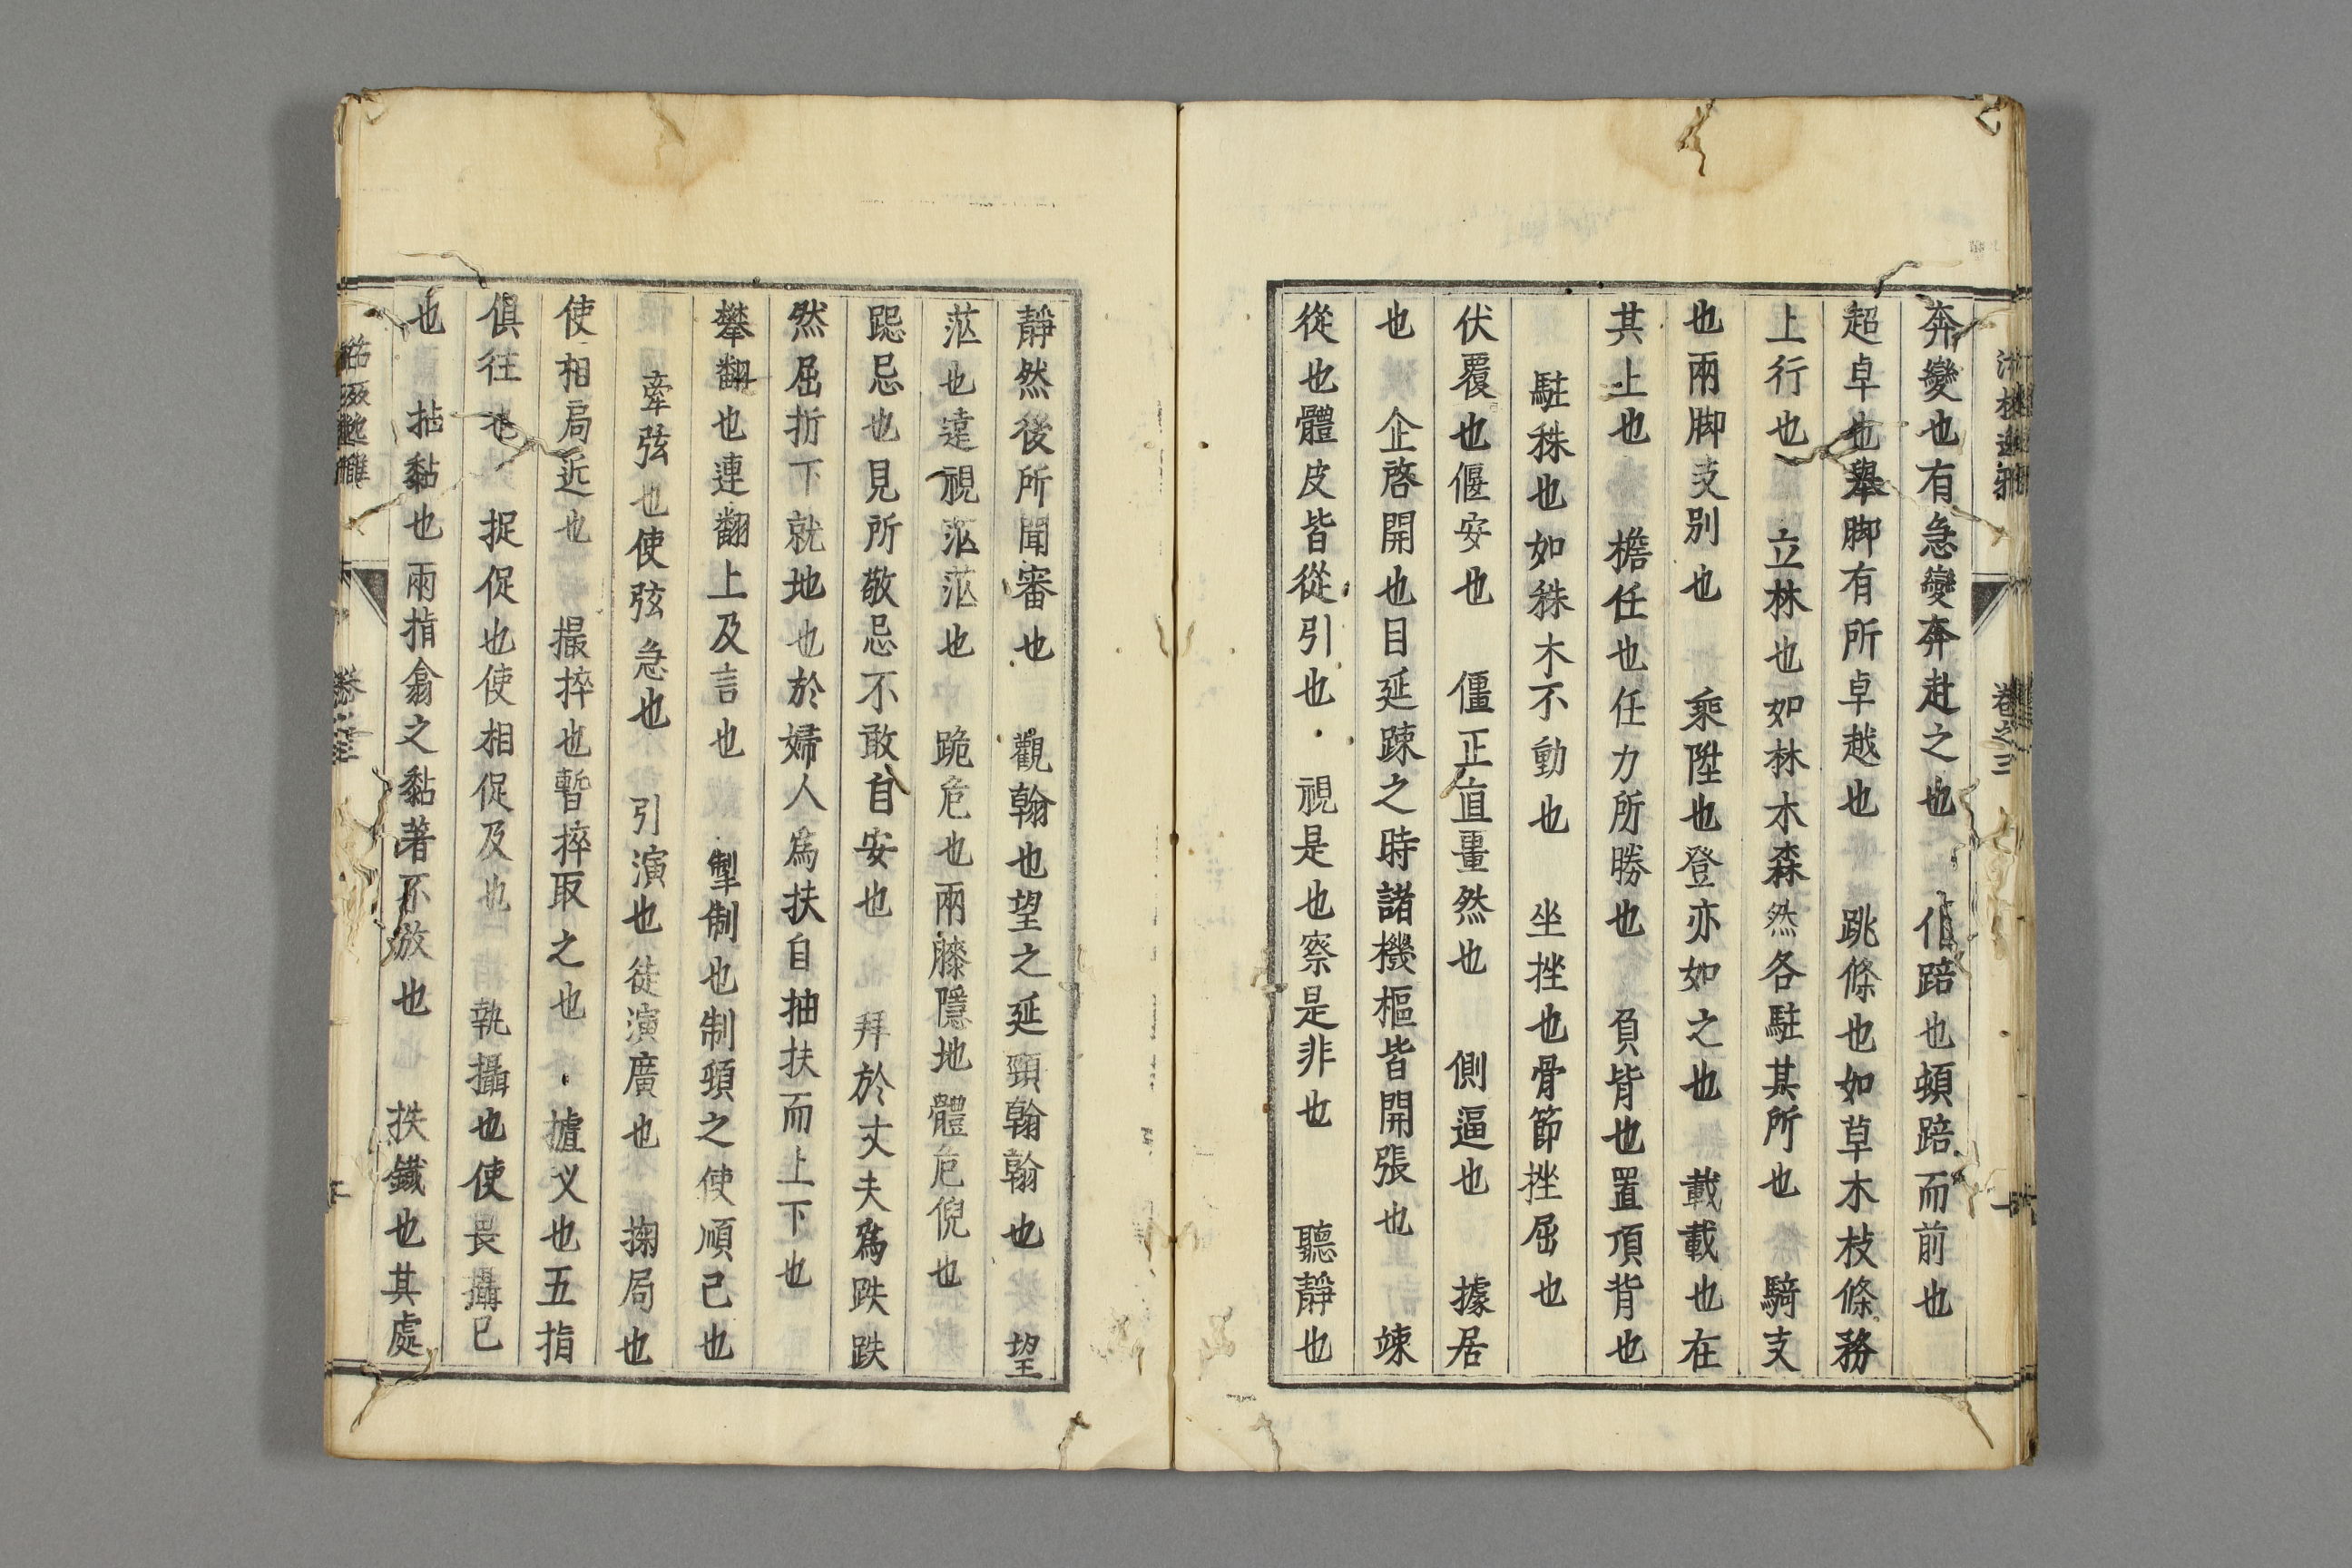 奔變也有急變奔赴之也 仆踣也頓踣而前也
超卓也舉脚有所卓越也 跳條也如草木枝條務
上行也 立林也如林木森然各駐其所也 騎支
也兩脚支別也 乘陞也登亦如之也 載載也在
其上也 檐任也任力所勝也 負背也置項背也
駐株也如株木不動也 坐挫也骨節挫屈也
伏覆也偃安也 僵正直畺然也 側逼也 據居
也 企啓開也目延竦之時諸機樞皆開張也 竦
從也體皮皆從引也 視是也察是非也 聽靜也
卷之三
靜然後所聞審也 觀翰也望之延頸翰翰也 望
茫也遠視茫茫也 跪危也兩膝隱地體危倪也
跽忌也見所敬忌不敢自安也 拜於丈夫爲跌跌
然屈折下就地也於婦人爲扶自抽扶而上下也
攀翻也連翻上及言也 掣制也制頓之使順己也
牽弦也使弦急也 引演也徒演廣也 掬局也
使相局近也 撮捽也暫捽取之也 摣叉也五指
俱往也 捉促也使相促及也 執攝也使畏攝已
也 拈黏也兩指翕之黏著不放也 抶鐵也其處
卷之三